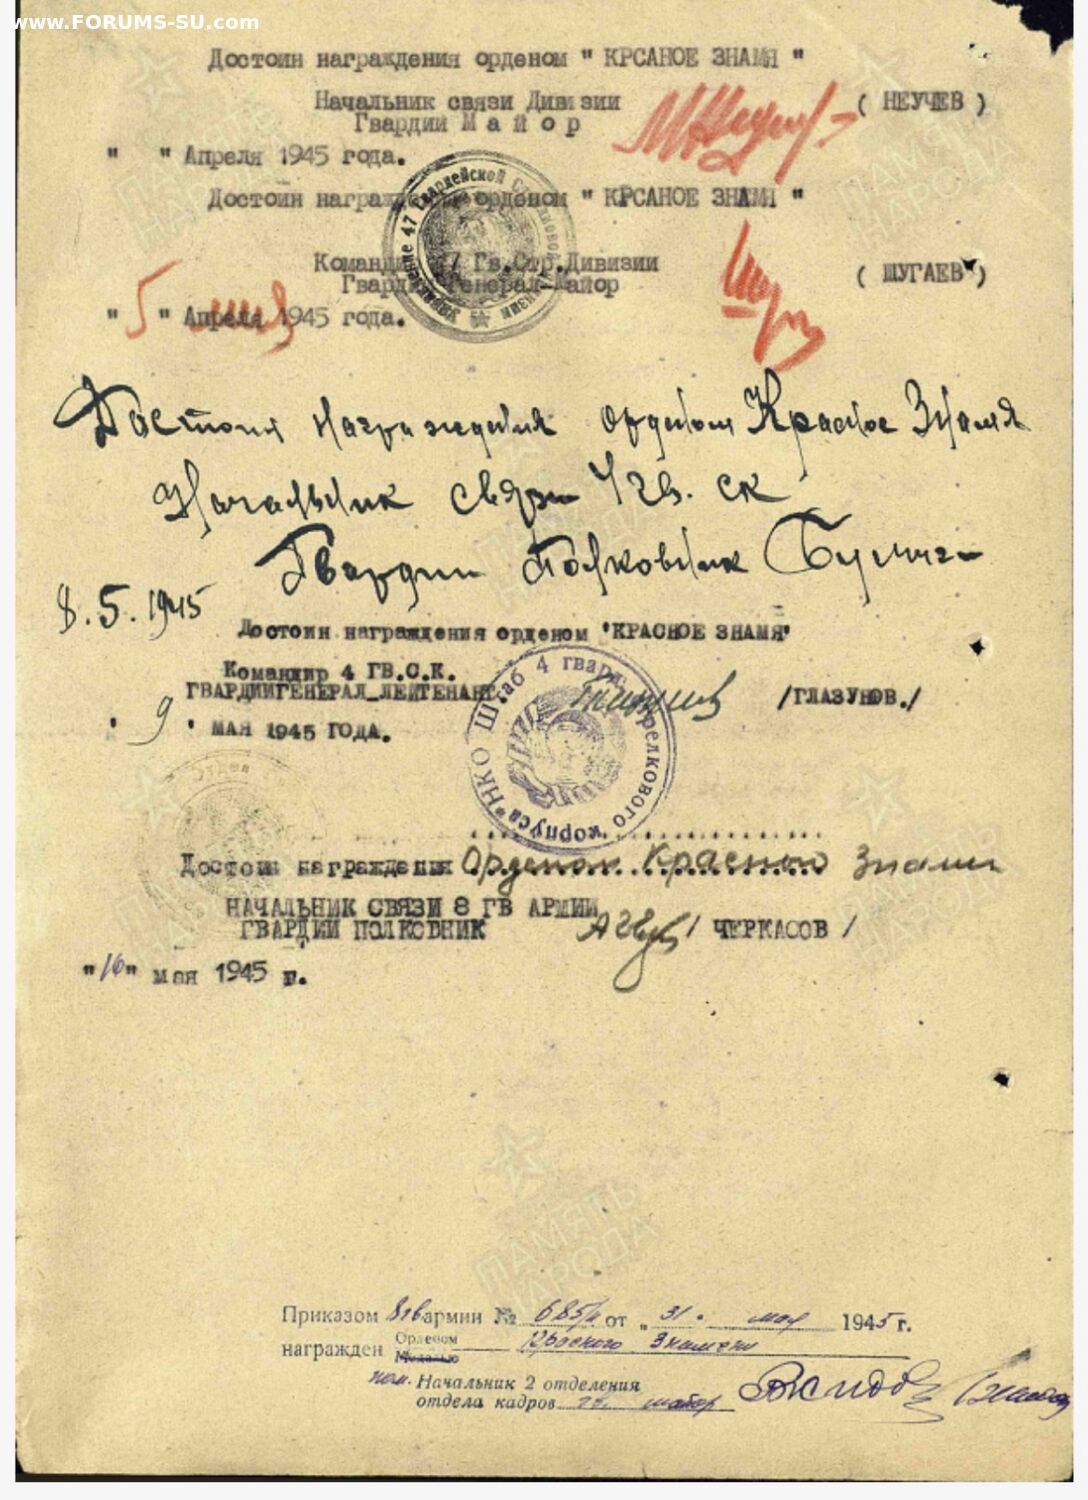 www.FORUMS-SU.com
Достоин награждения орденом " КРСАНОЕ ЗНАМЯ "
Начальник связи Дивизии ( НЕУЧЕВ )
Гвардии М а й о р
" " Апреля 1945 года.
Достоин награждения орденом " КРСАНОЕ ЗНАМЯ "
Командир 47 Гв.Стр.Дивизии ( ШУГАЕВ )
Гвардии Генерал-Майор
" 5 " Апреля мая 1945 года.
Достоин награждения орденом Красное Знамя
Начальник связи 4 гв. ск
Гвардии Полковник
8.5.1945
Достоин награждения орденом "КРАСНОЕ ЗНАМЯ"
Командир 4 ГВ.С.К.
ГВАРДИИГЕНЕРАЛ_ЛЕЙТЕНАНТ /ГЛАЗУНОВ./
" 9 " МАЯ 1945 ГОДА.
НКО Штаб 4 гвард. стрелкового корпуса
Достоин награждения Орденом Красное Знамя
НАЧАЛЬНИК СВЯЗИ 8 ГВ АРМИИ
ГВАРДИИ ПОЛКОВНИК / ЧЕРКАСОВ /
"16" мая 1945 г.
ПАМЯТЬ НАРОДА
Приказом 8 гв армии № 685/н от "31" мая 1945 г.
награжден Орденом Медалью Красного Знамени
пом. Начальник 2 отделения
отдела кадров гв. майор